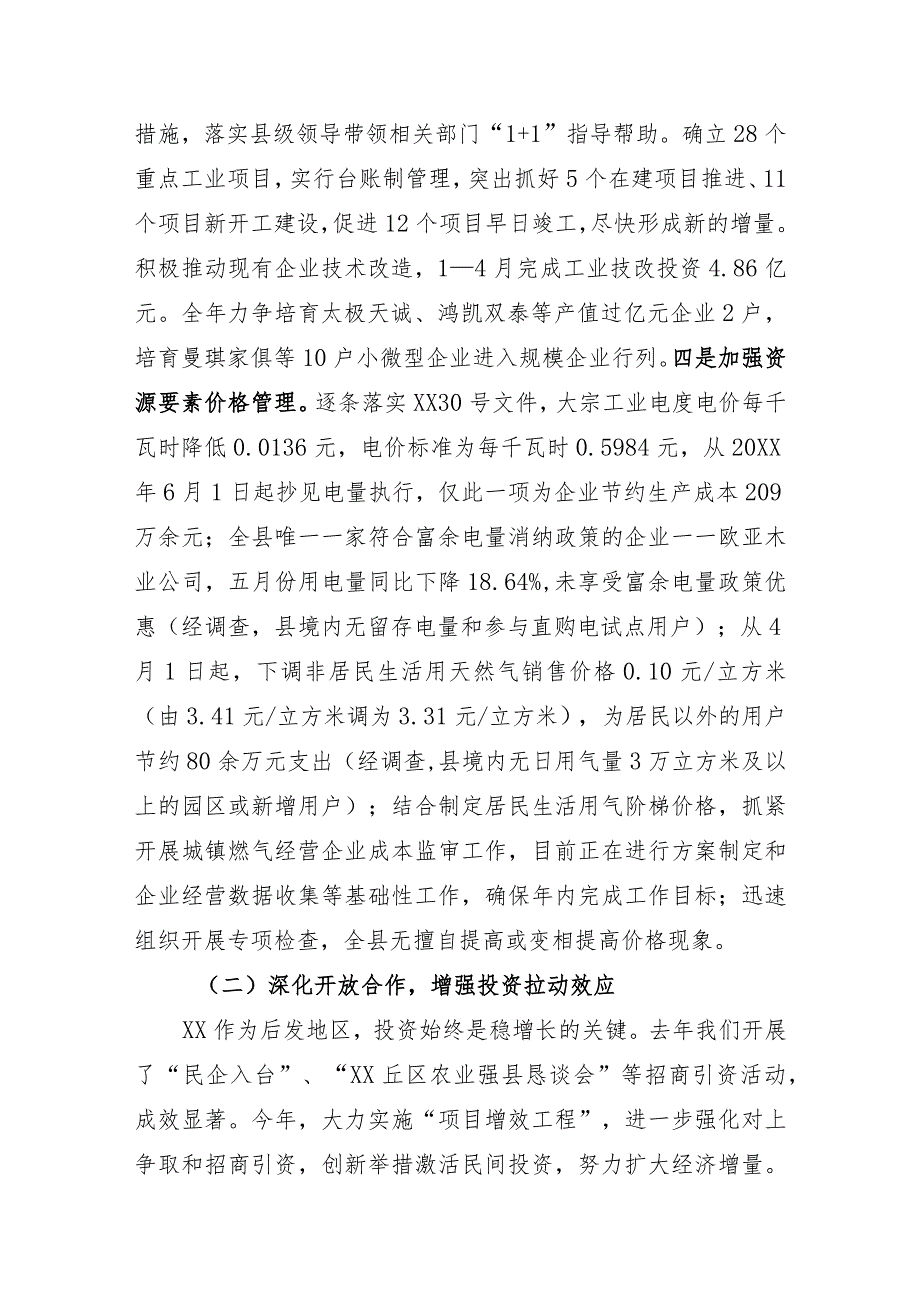 措施，落实县级领导带领相关部门“1+1”指导帮助。确立28个
重点工业项目,实行台账制管理,突出抓好5个在建项目推进、11
个项目新开工建设,促进12个项目早日竣工,尽快形成新的增量。
积极推动现有企业技术改造，1—4月完成工业技改投资4.86亿
元。全年力争培育太极天诚、鸿凯双泰等产值过亿元企业2户，
培育曼琪家俱等10户小微型企业进入规模企业行列。四是加强资
源要素价格管理。逐条落实XX30号文件,大宗工业电度电价每千
瓦时降低0.0136元，电价标准为每千瓦时0.5984元，从20XX
年6月1日起抄见电量执行，仅此一项为企业节约生产成本209
万余元；全县唯一一家符合富余电量消纳政策的企业一一欧亚木
业公司，五月份用电量同比下降18.64%,未享受富余电量政策优
惠（经调查，县境内无留存电量和参与直购电试点用户）；从4
月1日起，下调非居民生活用天然气销售价格0.10元/立方米
（由3.41元/立方米调为3.31元/立方米），为居民以外的用户
节约80余万元支出（经调查,县境内无日用气量3万立方米及以
上的园区或新增用户）；结合制定居民生活用气阶梯价格，抓紧
开展城镇燃气经营企业成本监审工作，目前正在进行方案制定和
企业经营数据收集等基础性工作，确保年内完成工作目标；迅速
组织开展专项检查，全县无擅自提高或变相提高价格现象。
（二）深化开放合作，增强投资拉动效应
XX作为后发地区，投资始终是稳增长的关键。去年我们开展
了“民企入台”、“XX丘区农业强县恳谈会”等招商引资活动，
成效显著。今年，大力实施“项目增效工程”，进一步强化对上
争取和招商引资，创新举措激活民间投资，努力扩大经济增量。